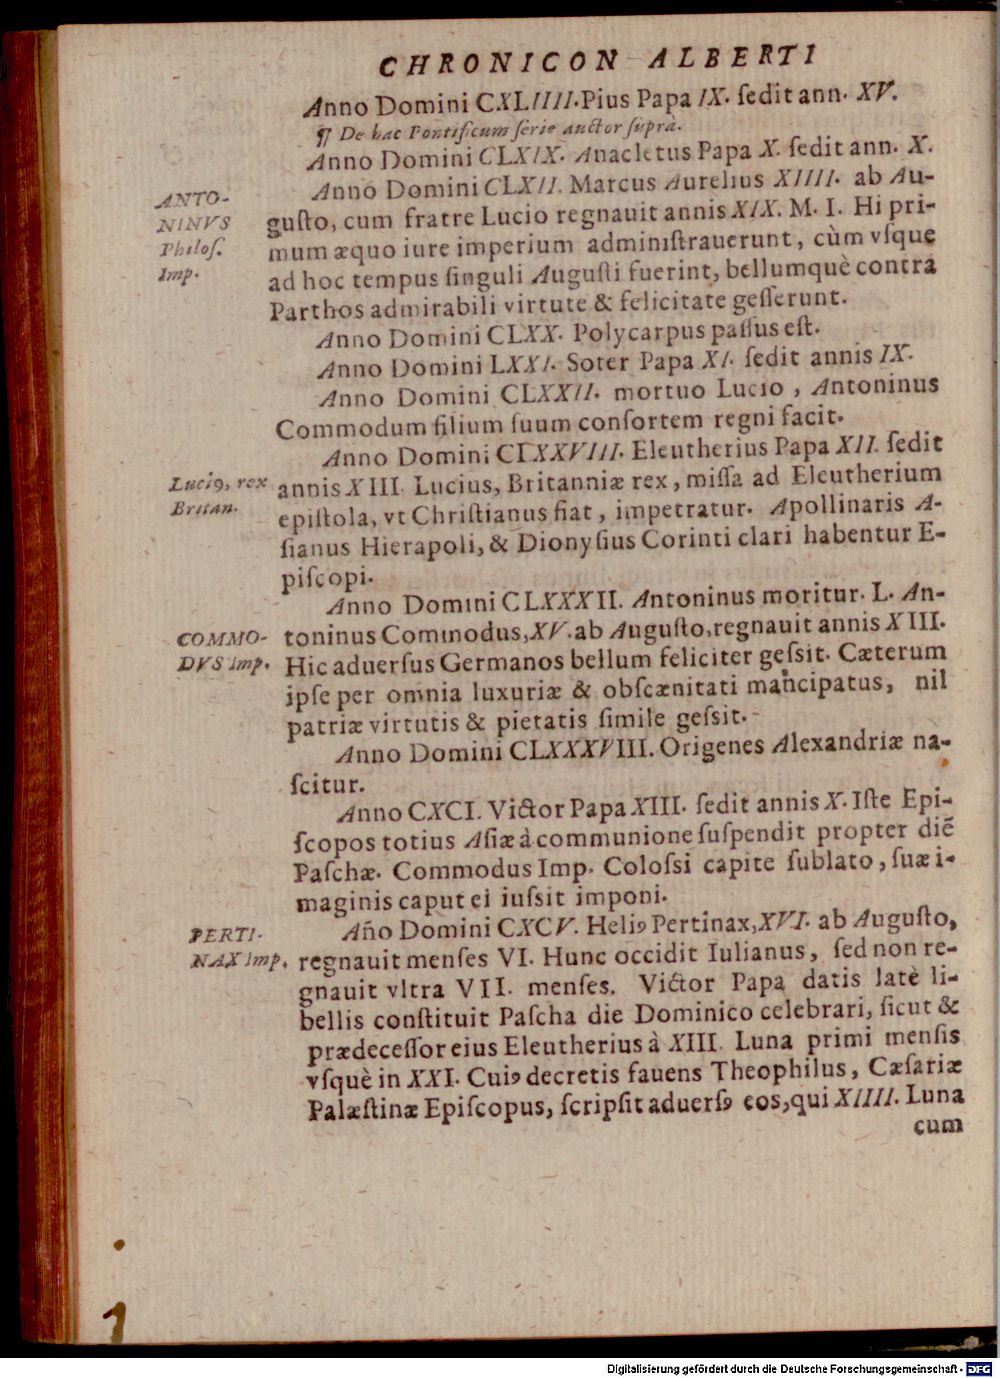 CHRONICON ALBERTI
Anno Domini CXLIIII. Pius Papa IX. ſedit ann. XV.
¶ De hac Pontificum ſerie auctor ſuprà.
Anno Domini CLXIX. Anacletus Papa X. ſedit ann. X.
Anno Domini CLXII. Marcus Aurelius XIIII. ab Au-
ANTO-
NINVS
Philoſ.
Imp.
guſto, cum fratre Lucio regnauit annis XIX. M. I. Hi pri-
mum æquo iure imperium adminiſtrauerunt, cùm vſque
ad hoc tempus ſinguli Auguſti fuerint, bellumquè contra
Parthos admirabili virtute & felicitate geſſerunt.
Anno Domini CLXX. Polycarpus paſſus eſt.
Anno Domini LXXI. Soter Papa XI. ſedit annis IX.
Anno Domini CLXXII. mortuo Lucio, Antoninus
Commodum filium ſuum conſortem regni facit.
Anno Domini CLXXVIII. Eleutherius Papa XII. ſedit
Luciꝰ, rex
Britan.
annis XIII. Lucius, Britanniæ rex, miſſa ad Eleutherium
epiſtola, vt Chriſtianus fiat, impetratur. Apollinaris A-
ſianus Hierapoli, & Dionyſius Corinti clari habentur E-
piſcopi.
Anno Domini CLXXXII. Antoninus moritur. L. An-
COMMO-
DVS Imp.
toninus Commodus, XV. ab Auguſto, regnauit annis XIII.
Hic aduerſus Germanos bellum feliciter geſsit. Cæterum
ipſe per omnia luxuriæ & obſcænitati mancipatus, nil
patriæ virtutis & pietatis ſimile geſsit.
Anno Domini CLXXXVIII. Origenes Alexandriæ na-
ſcitur.
Anno CXCI. Victor Papa XIII. ſedit annis X. Iſte Epi-
ſcopos totius Aſiæ à communione ſuſpendit propter diē
Paſchæ. Commodus Imp. Coloſsi capite ſublato, ſuæ i-
maginis caput ei iuſsit imponi.
PERTI-
NAX Imp.
Año Domini CXCV. Heliꝰ Pertinax, XVI. ab Auguſto,
regnauit menſes VI. Hunc occidit Iulianus, ſed non re-
gnauit vltra VII. menſes. Victor Papa datis latè li-
bellis conſtituit Paſcha die Dominico celebrari, ſicut &
prædeceſſor eius Eleutherius à XIII. Luna primi menſis
vſquè in XXI. Cuiꝰ decretis fauens Theophilus, Cæſariæ
Palæſtinæ Epiſcopus, ſcripſit aduerſꝰ eos, qui XIIII. Luna
cum
1
Digitalisierung gefördert durch die Deutsche Forschungsgemeinschaft - DFG